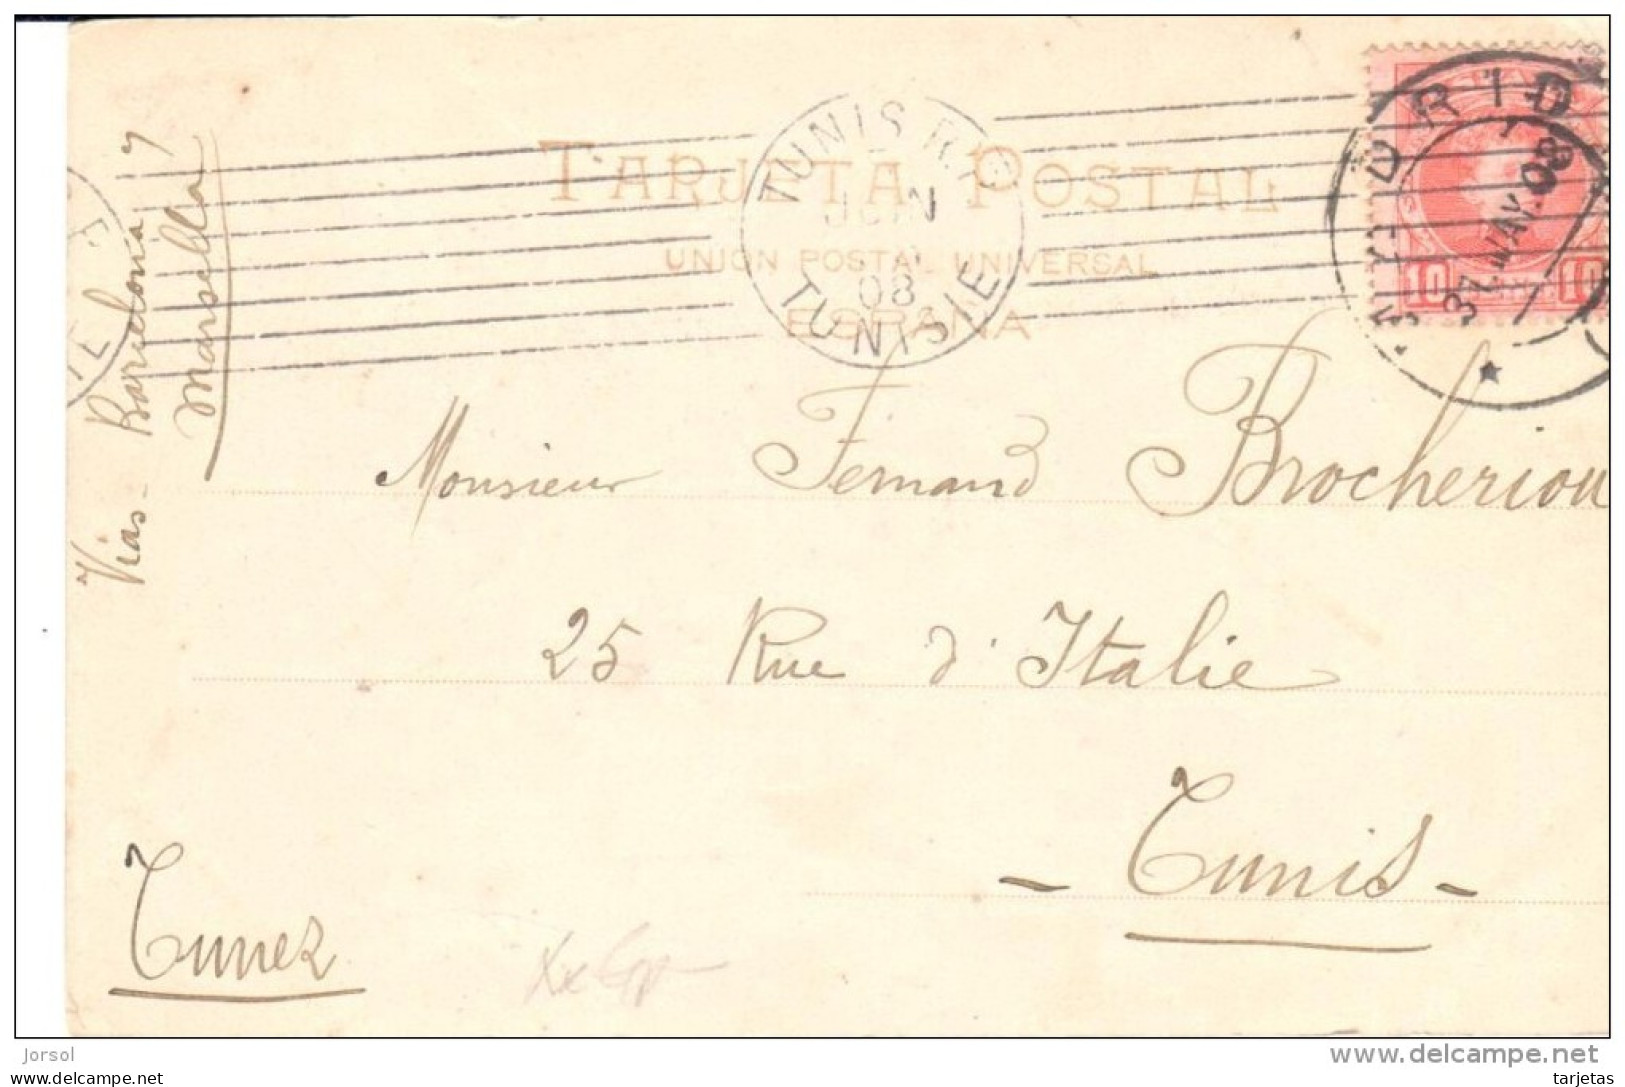 TARJETA POSTAL
UNION POSTAL UNIVERSAL
ESPAÑA
TUNIS R.P.
JUIN
08
TUNISIE
MADRID
31.MAY.08
10
10
Vias - Barcelona y
Marsella
Monsieur Fernand Brocheriou
25 Rue d'Italie
- Tunis -
Tunez
Jorsol
www.delcampe.net
tarjetas